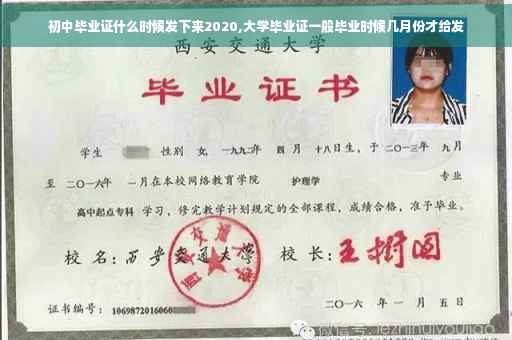 初中毕业证什么时候发下来2020,大学毕业证一般毕业时候几月份才给发
西安交通大学
毕业证书
学生 性别 女, 一九九二年 四月 十八日生, 于二〇一三年 九月
至 二〇一六年 一月在本校网络教育学院 护理学 专业
高中起点专科 学习, 修完教学计划规定的全部课程, 成绩合格, 准予毕业。
校名: 西安交通大学 校长: 王树国
西安交通大学
证书编号: 1069872016060
二〇一六年 一月 五日
微信号: lezhihuiyoujiao